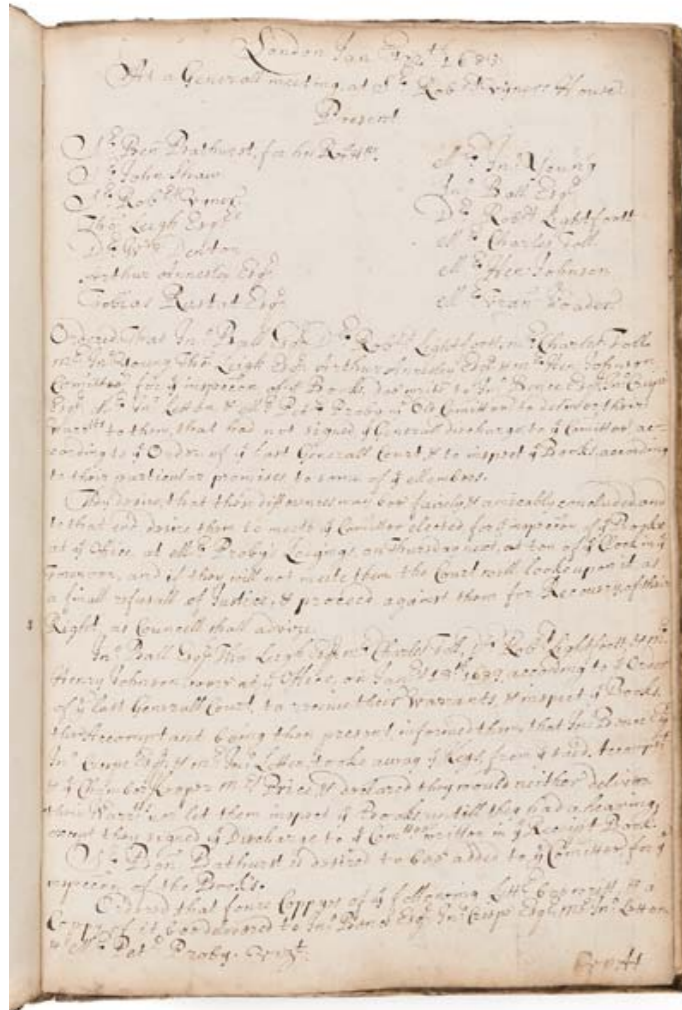 London Jan 1683
At a Generall meeting at Sr Robt Vyners House
Present
Sr Ben Bathurst, for her
Sr John Shaw
Sr Robt Vyner
Tho Leigh Esqr
Dr Wm Denton
Arthur Annesley Esqr
Tobias Rustat Esqr
Mr Jno Young
Jno Ball Esqr
Dr Robt Lightfoott
Mr Charles Toll
Mr Hen Johnson
Mr Fran
Ordered That Jno Ball Esqr Dr Robt Lightfoott, mr Charles Toll
mr Jno Young Tho Leigh Esqr Arthur Annesley Esqr & mr Hen Johnson
Comittee for ye inspeccon of ye Books, doe write to Jno Bence Esqr, Jno Crispe
Esqr Mr Jno Letten & Mr Petr Proby ye Old Comittee to deliver their
to them, that had not signed ye Generall discharge to ye Comittee ac-
cording to ye Order of ye last Generall Court, & to inspect ye Books according
to their particular promises to some of ye Members.
desire, that their differences may bee fairely, & amicably concluded, and
to that end desire them to meete ye Comittee elected for inspeccon of ye Books
at ye Office at Mr Proby's Lodgings on Thursday next, at ten of ye Clock in ye
forenoon, and if they will not meete them the Court will looke upon it as
a finall refusall of Justice, & proceed against them for Recovery of their
Right, as Councell shall advise.
Jno Ball Esqr Tho Leigh Esqr mr Charles Toll, Dr Robt Lightfoott, & mr
Henry Johnson were at ye Office, on Janry 18th 1683 according to ye Order
of ye last Generall Court, to receive their Warrants, & inspect ye Books,
the Accomptant being then present informed them, that Jno Bence Esqr
Jno Crispe Esqr, & mr Jno Letten tooke away ye Keys from ye said Accompt
& ye Chamber Keeper Mr Price, & declared they would neither deliver
their Warrts or let them inspect ye Books untill they had a clearing,
except they signed ye Discharge to ye Comittee written in ye Receipt Book.
Sr Benj Bathurst is desired to bee added to ye Comittee for ye
inspeccon of the Books.
Ordered that foure Coppyes of ye following Lettr bee writt, & a
Coppy of it bee delivered to Jno Bence Esqr Jno Crispe Esqr, Mr Jno Letten
& Mr Petr Proby.